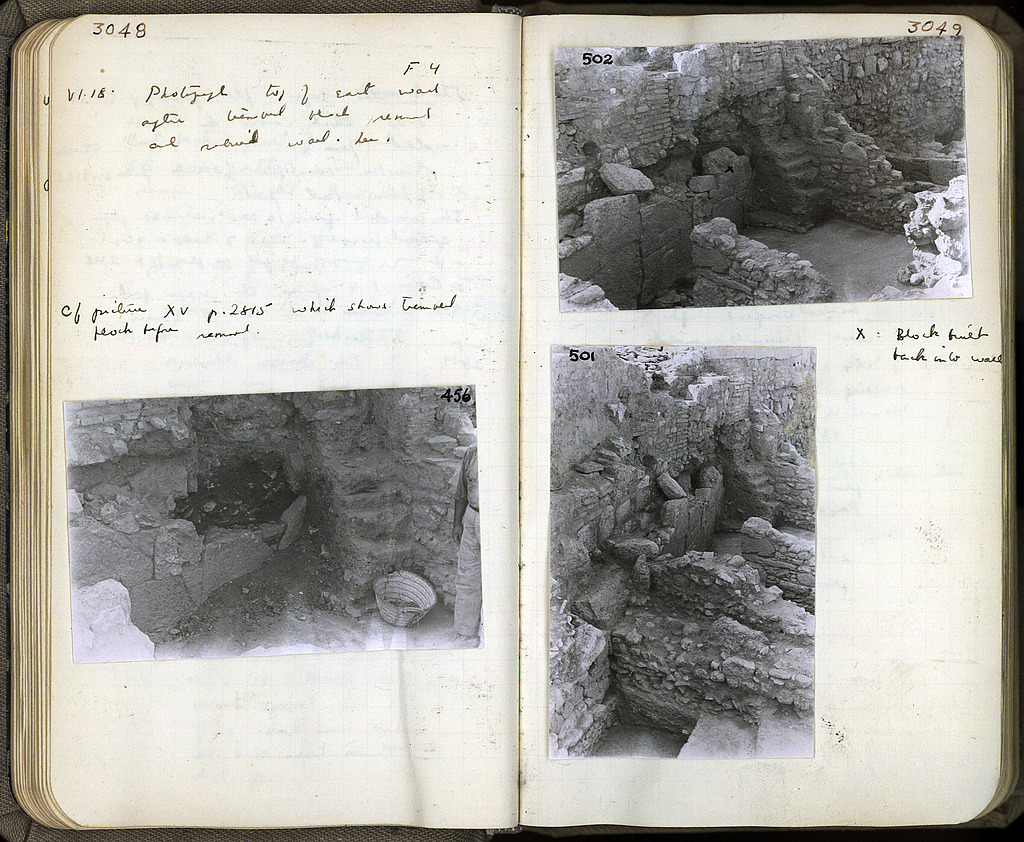 3048
F 4
VI.18. Photograph top of east wall
after tremved block removed
and rebuilt wall.
Cf picture XV p. 2815 which shows tremved
block before removal.
456
3049
502
X: Block built
back into wall
501